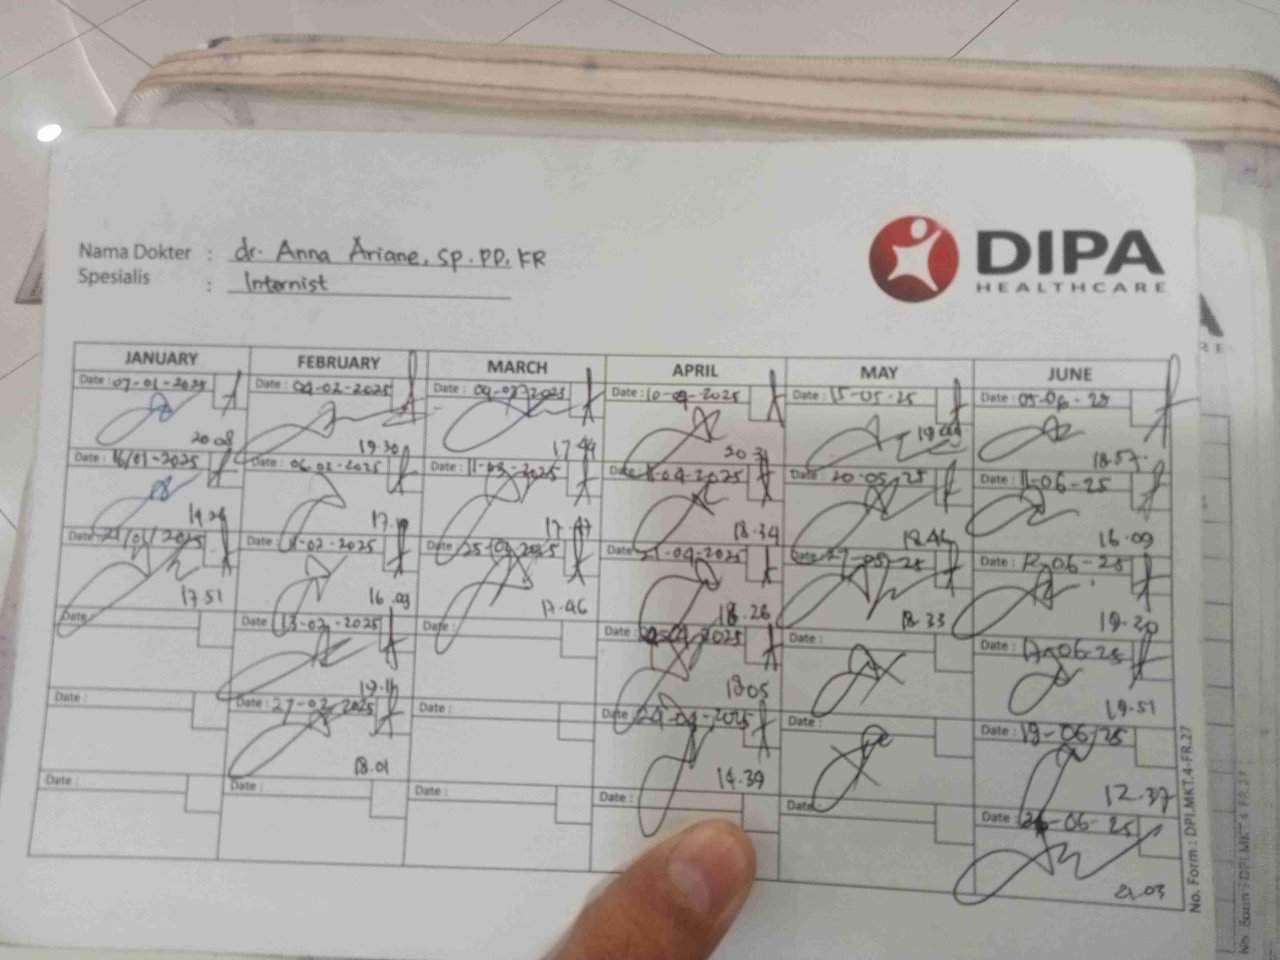 Nama Dokter : dr. Anna Ariane, Sp.PD, KR
Spesialis : Internist
DIPA
HEALTHCARE
JANUARY FEBRUARY MARCH APRIL MAY JUNE
Date : 07-01-2025 Date : 04-02-2025 Date : Date : Date : 15-05-25 Date : 05-06-25
20.08 19.30 17.44 20.31 18.57
Date : 16/01-2025 Date : 06-02-2025 Date : 11-03-2025 Date : Date : 20-05-25 Date : 11-06-25
17.47 18.34 18.46 16.09
Date : 21/01/2025 Date : 11-02-2025 Date : 25-03-2025 Date : 21-04-2025 Date : 27-05-25 Date : 12-06-25
17.51 16.03 17.46 18.26 18.33 19.20
Date : Date : 13-02-2025 Date : Date : Date : Date : 17-06-25
19.11 18.05 19.51
Date : Date : 27-02-2025 Date : Date : 24-04-2025 Date : Date : 19-06-25
18.01 14.39 12.37
Date : Date : Date : Date : Date : Date : 26-06-25
21.03
No. Form : DPI.MKT.4-FR.27